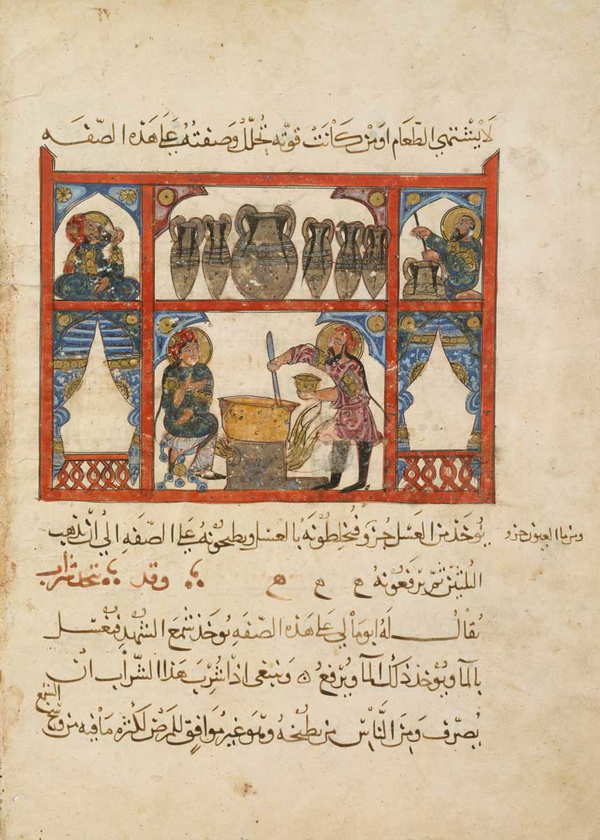 لا يشتهي الطعام او من كانت قوته تخلل وصفته على هذه الصفه
يوخذ من العسل جزو فيخلطونه بالعسل ويطبخونه على الصفه الى ان يذهب
ومن ما العيون جزو
الثلثين ثم يرفعونه وقد يتخذ شراب
يقال له ابومالي على هذه الصفه يوخذ شمع الشهد فيغسل
بالما ويوخذ ذلك الما ويرفع وينبغي اذا شرب هذا الشراب ان
يصرف ومن الناس من يطبخه وهو غير موافق للمرضى لكثره ما فيه من وسخ
الشمع